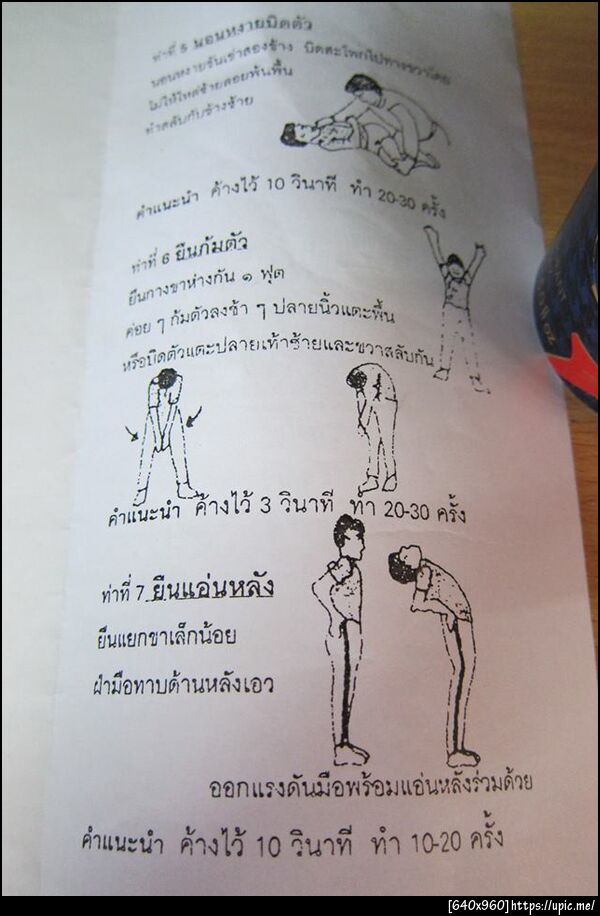 ท่าที่ 5 นอนหงายบิดตัว
นอนหงายชันเข่าสองข้าง บิดสะโพกไปทางขวาโดย
ไม่ให้ไหล่ซ้ายลอยพ้นพื้น
ทำสลับกับข้างซ้าย
คำแนะนำ ค้างไว้ 10 วินาที ทำ 20-30 ครั้ง
ท่าที่ 6 ยืนก้มตัว
ยืนกางขาห่างกัน ๑ ฟุต
ค่อย ๆ ก้มตัวลงช้า ๆ ปลายนิ้วแตะพื้น
หรือบิดตัวแตะปลายเท้าซ้ายและขวาสลับกัน
คำแนะนำ ค้างไว้ 3 วินาที ทำ 20-30 ครั้ง
ท่าที่ 7 ยืนแอ่นหลัง
ยืนแยกขาเล็กน้อย
ฝ่ามือทาบด้านหลังเอว
ออกแรงดันมือพร้อมแอ่นหลังร่วมด้วย
คำแนะนำ ค้างไว้ 10 วินาที ทำ 10-20 ครั้ง
fl oz
[640x960]https://upic.me/